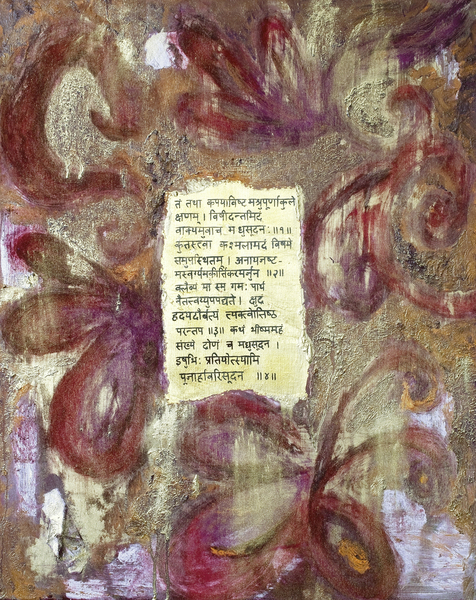 तं तथा कृपयाविष्ट मश्रुपूर्णाकुले
क्षणम् । विषीदन्तमिदं
वाक्यमुवाच म धुसूदनः ॥१॥
कुतस्त्वा कश्मलामदं विषमे
समुपस्थितम् । अनार्यजुष्ट-
मस्वर्ग्यमकीर्तिकरमर्जुन ॥२॥
क्लैब्यं मा स्म गमः पार्थ
नैतत्त्वय्युपपद्यते । क्षुद्रं
हृदयदौर्बल्यं त्यक्त्वोत्तिष्ठ
परन्तप ॥३॥ कथं भीष्ममहं
संख्ये द्रोणं च मधुसूदन ।
इषुभिः प्रतियोत्स्यामि
पूजार्हावरिसूदन ॥४॥